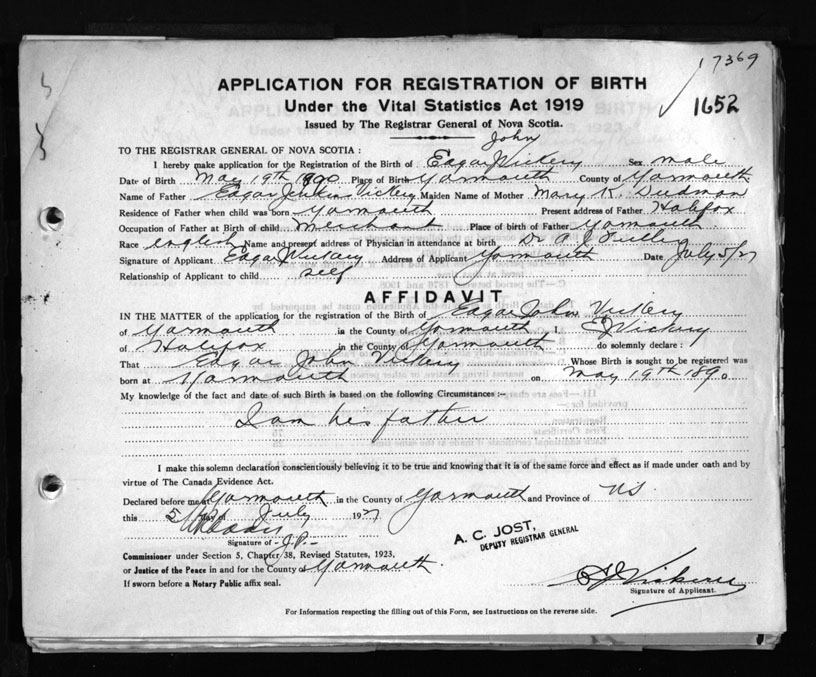 17369
APPLICATION FOR REGISTRATION OF BIRTH
Under the Vital Statistics Act 1919
1652
Issued by The Registrar General of Nova Scotia.
John
TO THE REGISTRAR GENERAL OF NOVA SCOTIA :
I hereby make application for the Registration of the Birth of Edgar Vickery Sex male
Date of Birth May 19th 1890 Place of Birth Yarmouth County of Yarmouth
Name of Father Edgar Jenkins Vickery Maiden Name of Mother Mary K. Dudman
Residence of Father when child was born Yarmouth Present address of Father Halifax
Occupation of Father at Birth of child merchant Place of birth of Father Yarmouth
Race english Name and present address of Physician in attendance at birth Dr A. J. Fuller
Signature of Applicant Edgar Vickery Address of Applicant Yarmouth Date July 5/27
Relationship of Applicant to child self
AFFIDAVIT
IN THE MATTER of the application for the Registration of the Birth of Edgar John Vickery
of Yarmouth in the County of Yarmouth I, E J Vickery
of Halifax in the County of Yarmouth do solemnly declare :
That Edgar John Vickery Whose Birth is sought to be registered was
born at Yarmouth on May 19th 1890
My knowledge of the fact and date of such Birth is based on the following Circumstances :-
I am his father
I make this solemn declaration conscientiously believing it to be true and knowing that it is of the same force and effect as if made under oath and by
virtue of The Canada Evidence Act.
Declared before me at Yarmouth in the County of Yarmouth and Province of NS
this 5 day of July 1927
Signature of J.P.
A. C. JOST,
DEPUTY REGISTRAR GENERAL
Commissioner under Section 5, Chapter 38, Revised Statutes, 1923,
or Justice of the Peace in and for the County of Yarmouth.
If sworn before a Notary Public affix seal.
E J Vickery
Signature of Applicant.
For Information respecting the filling out of this Form, see Instructions on the reverse side.